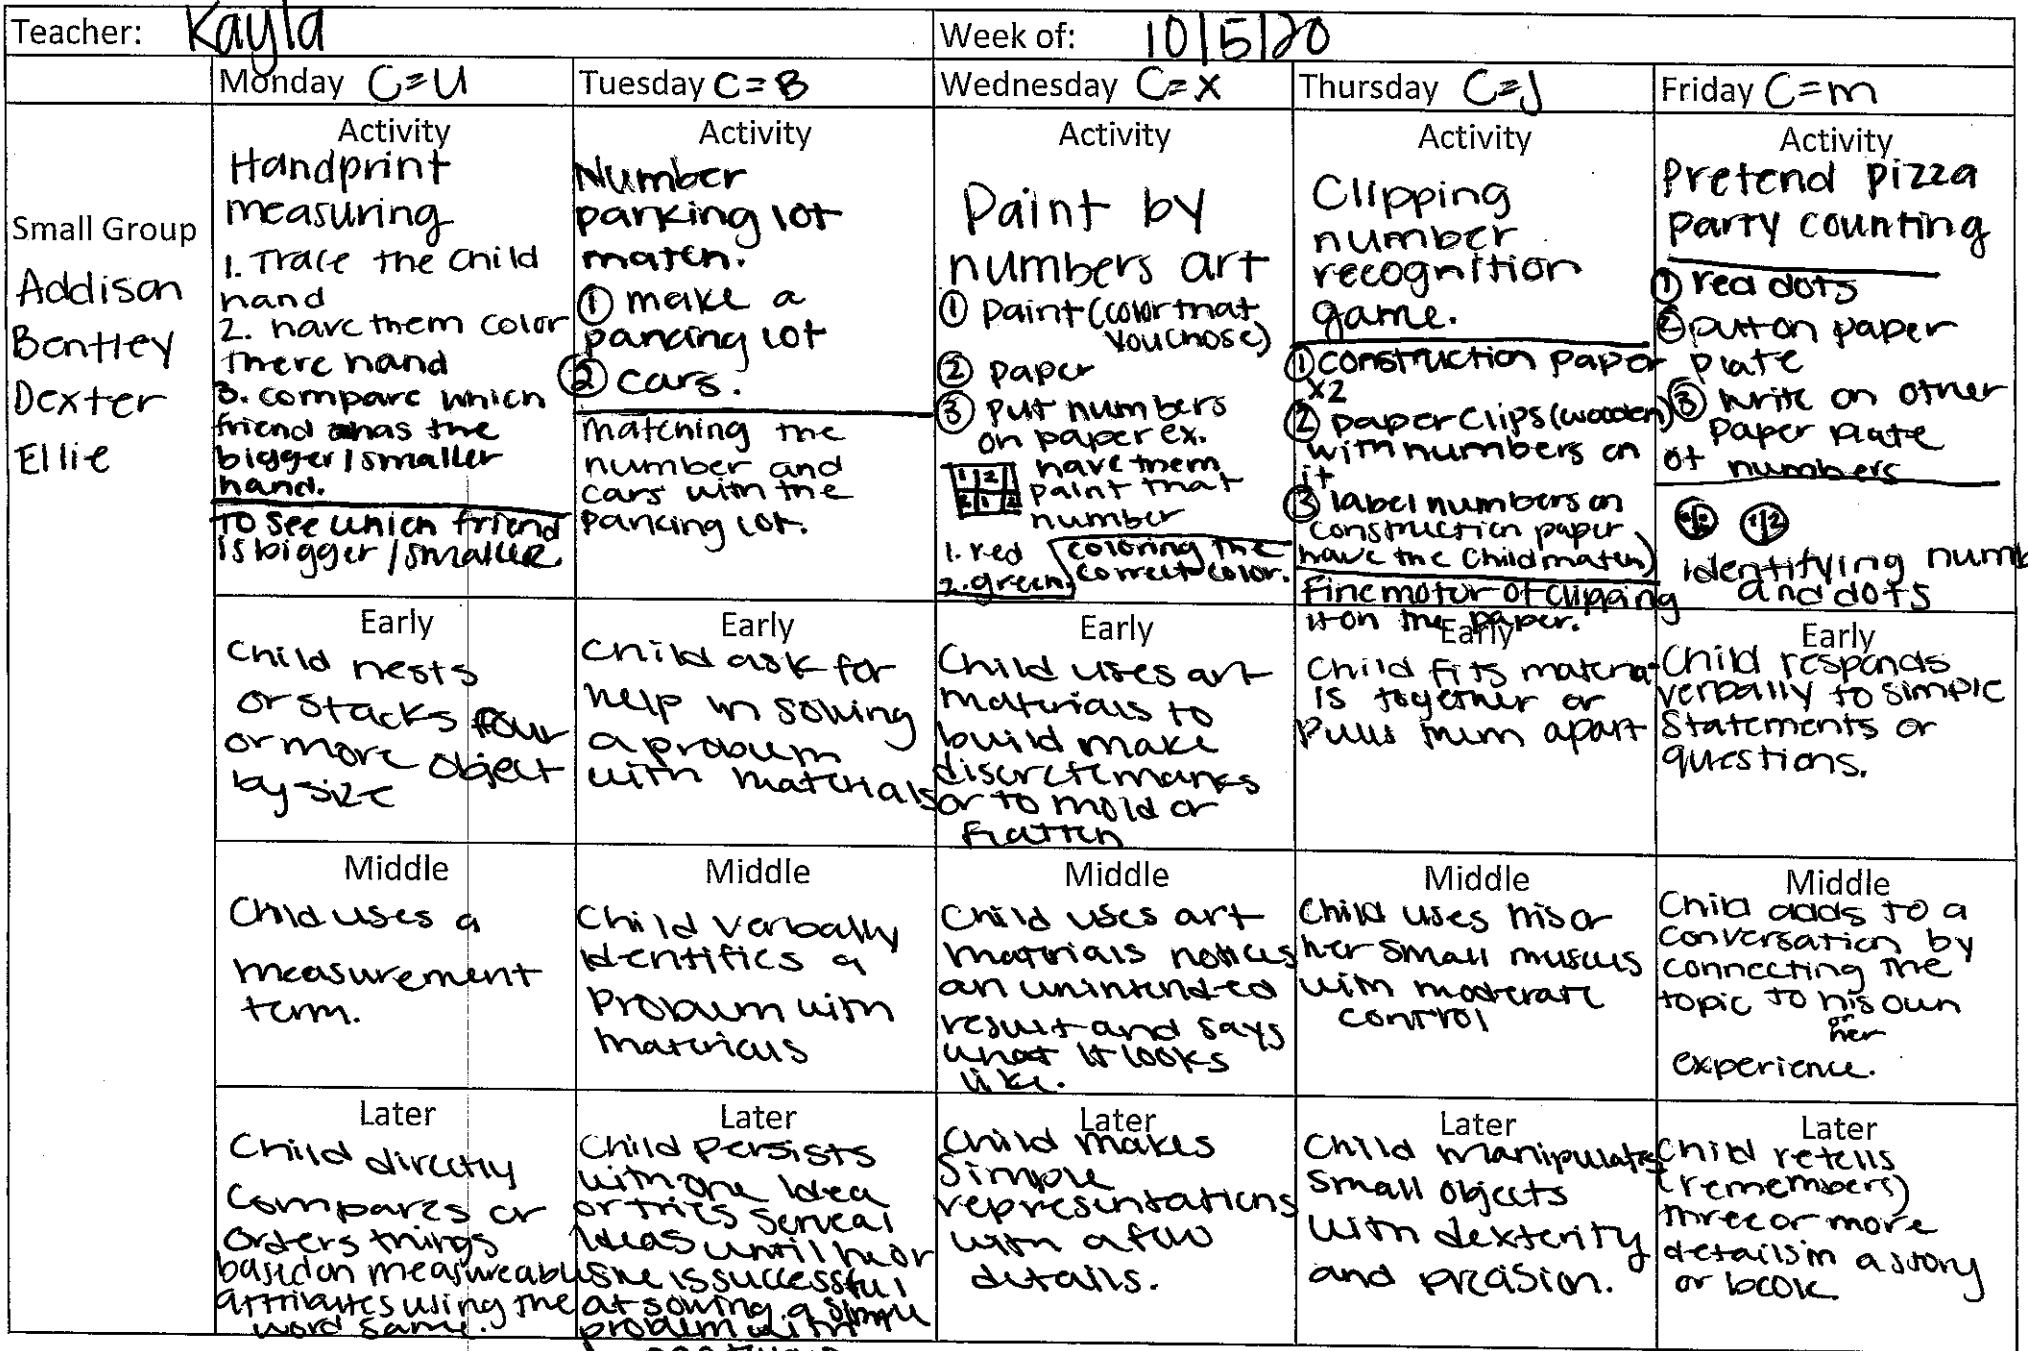 Teacher: Kayla
Week of: 10/5/20
Monday C=U
Tuesday C=B
Wednesday C=X
Thursday C=J
Friday C=m
Small Group
Addison
Bentley
Dexter
Ellie
Activity
Handprint
measuring
1. Trace the child
hand
2. have them color
there hand
3. compare which
friend has the
bigger/smaller
hand.
to see which friend
is bigger/smaller
Activity
Number
parking lot
match.
① make a
parking lot
② cars.
matching the
number and
cars with the
parking lot.
Activity
Paint by
numbers art
① paint (color that
you chose)
② paper
③ put numbers
on paper ex.
1 2
2 1 2
have them
paint that
number
1. red
2. green.
coloring the
correct color.
Activity
Clipping
number
recognition
game.
① construction paper
x2
② paper clips (wooden)
with numbers on
it
③ label numbers on
construction paper
have the child match)
fine motor of clipping
it on the paper.
Activity
Pretend pizza
party counting
① red dots
② put on paper
plate
③ write on other
paper plate
of numbers
1 2
identifying numb
and dots
Early
Child nests
or stacks four
or more object
by size
Early
Child ask for
help in solving
a problem
with materials
Early
Child uses art
materials to
build make
discrete marks
or to mold or
flatten
Early
Child fits materia-
ls together or
pulls them apart
Early
Child responds
verbally to simple
statements or
questions.
Middle
Child uses a
measurement
term.
Middle
Child verbally
identifies a
problem with
materials
Middle
Child uses art
materials notices
an unintended
result and says
what it looks
like.
Middle
Child uses his or
her small muscles
with moderate
control
Middle
Child adds to a
conversation by
connecting the
topic to his own
or
her
experience.
Later
Child directly
compares or
orders things
based on measureable
attributes using the
word same.
Later
Child persists
with one idea
or tries serveal
ideas until he or
she is successful
at solving a simple
problem with
Later
Child makes
simple
representations
with a few
details.
Later
Child manipulates
small objects
with dexterity
and precision.
Later
Child retells
(remembers)
three or more
details in a story
or book.